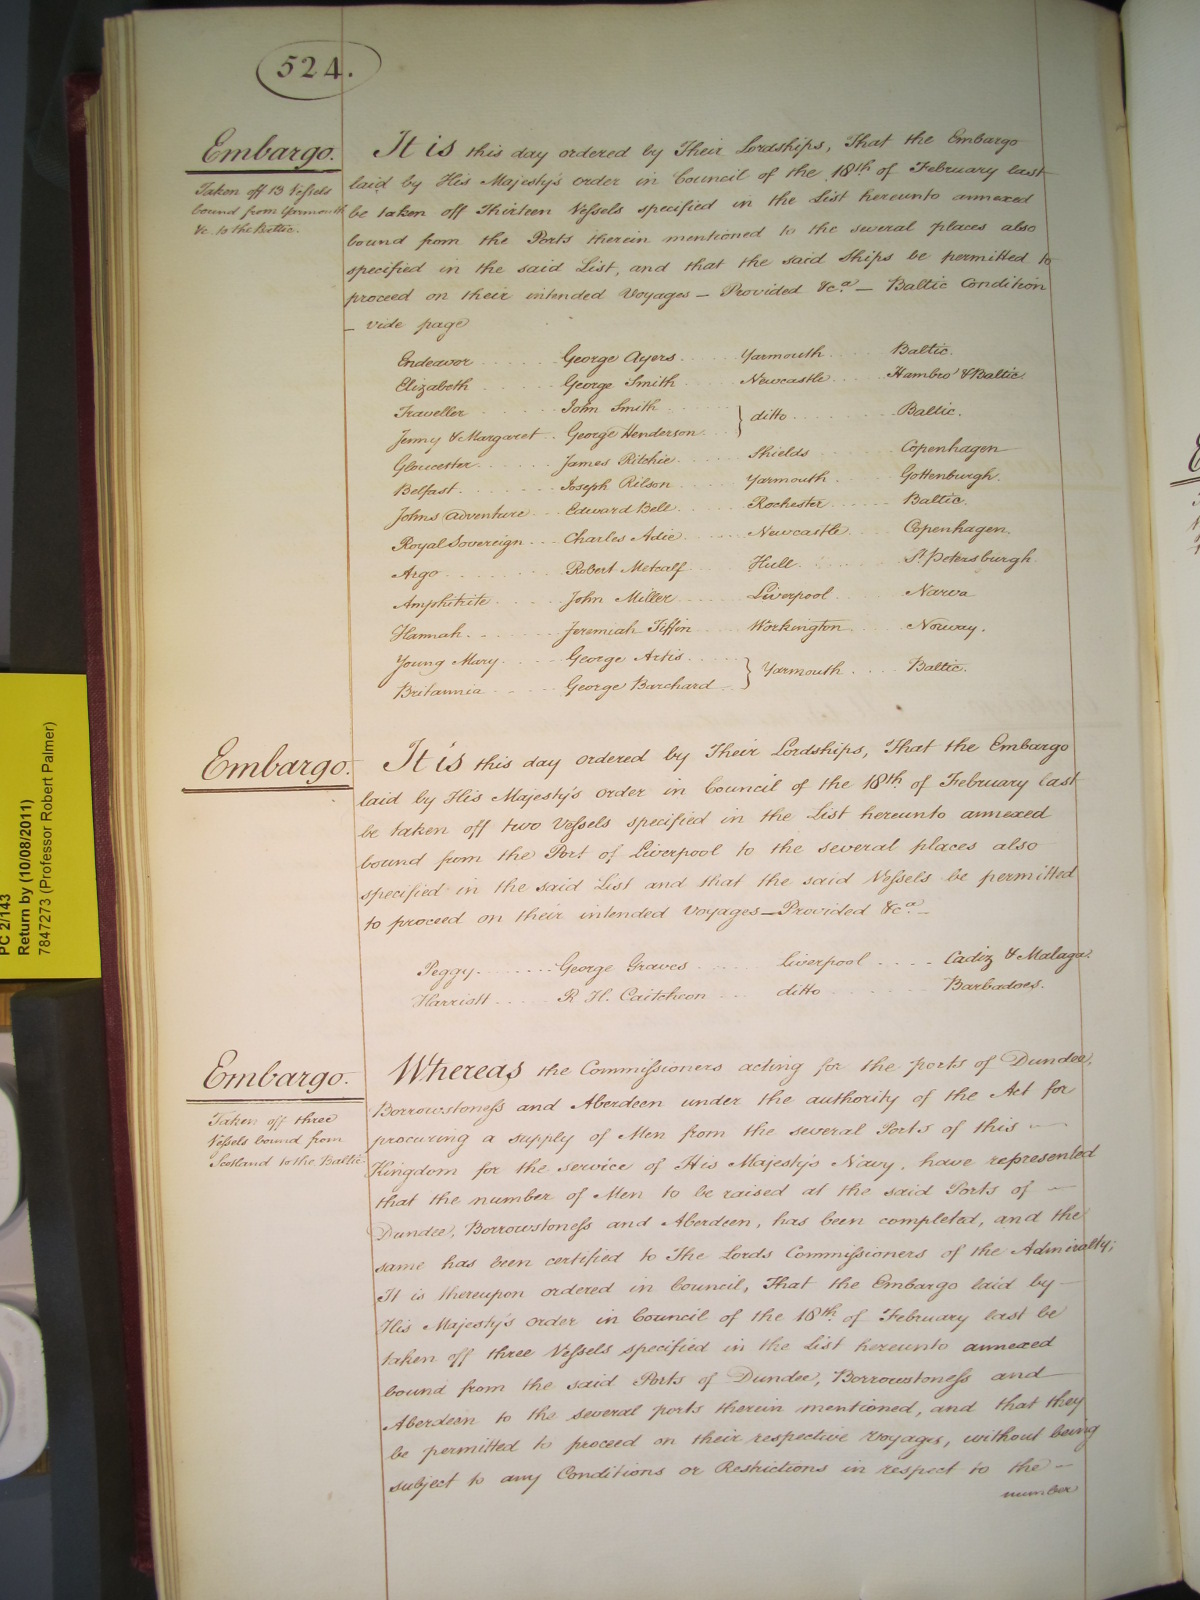 524.
Embargo.
Taken off 13 Vessels
bound from Yarmouth
&c. to the Baltic.
It is this day ordered by Their Lordships, That the Embargo
laid by His Majesty's Order in Council of the 18th of February last
be taken off Thirteen Vessels specified in the List hereunto annexed
bound from the Ports therein mentioned to the several places also
specified in the said List, and that the said Ships be permitted to
proceed on their intended Voyages – Provided &ca. – Baltic Condition
– vide page
Endeavor George Ayers Yarmouth Baltic.
Elizabeth George Smith Newcastle Hambro' & Baltic.
Traveller John Smith } ditto Baltic.
Jenny & Margaret George Henderson
Gloucester James Ritchie Shields Copenhagen
Belfast Joseph Rilson Yarmouth Gottenburgh.
Johns Adventure Edward Bell Rochester Baltic.
Royal Sovereign Charles Adie Newcastle Copenhagen.
Argo Robert Metcalf Hull St. Petersburgh
Amphitrite John Miller Liverpool Narva
Hannah Jeremiah Tiffin Workington Norway.
Young Mary George Artis } Yarmouth Baltic.
Britannia George Barchard
Embargo.
It is this day ordered by Their Lordships, That the Embargo
laid by His Majesty's Order in Council of the 18th. of February last
be taken off two Vessels specified in the List hereunto annexed
bound from the Port of Liverpool to the several places also
specified in the said List and that the said Vessels be permitted
to proceed on their intended Voyages – Provided &ca. –
Peggy George Graves Liverpool Cadiz & Malaga.
Harriott R. H. Caitcheon ditto Barbadoes.
Embargo.
Taken off three
Vessels bound from
Scotland to the Baltic
Whereas the Commissioners acting for the ports of Dundee,
Borrowstoness and Aberdeen under the authority of the Act for
procuring a supply of Men from the several Ports of this –
Kingdom for the service of His Majesty's Navy, have represented
that the number of Men to be raised at the said Ports of –
Dundee, Borrowstoness and Aberdeen, has been completed, and the
same has been certified to The Lords Commissioners of the Admiralty;
It is thereupon ordered in Council, That the Embargo laid by –
His Majesty's Order in Council of the 18th. of February last be
taken off three Vessels specified in the List hereunto annexed
bound from the said Ports of Dundee, Borrowstoness and
Aberdeen to the several ports therein mentioned, and that they
be permitted to proceed on their respective Voyages, without being
subject to any Conditions or Restrictions in respect to the –
number
PC 2/143
Return by (10/08/2011)
7847273 (Professor Robert Palmer)